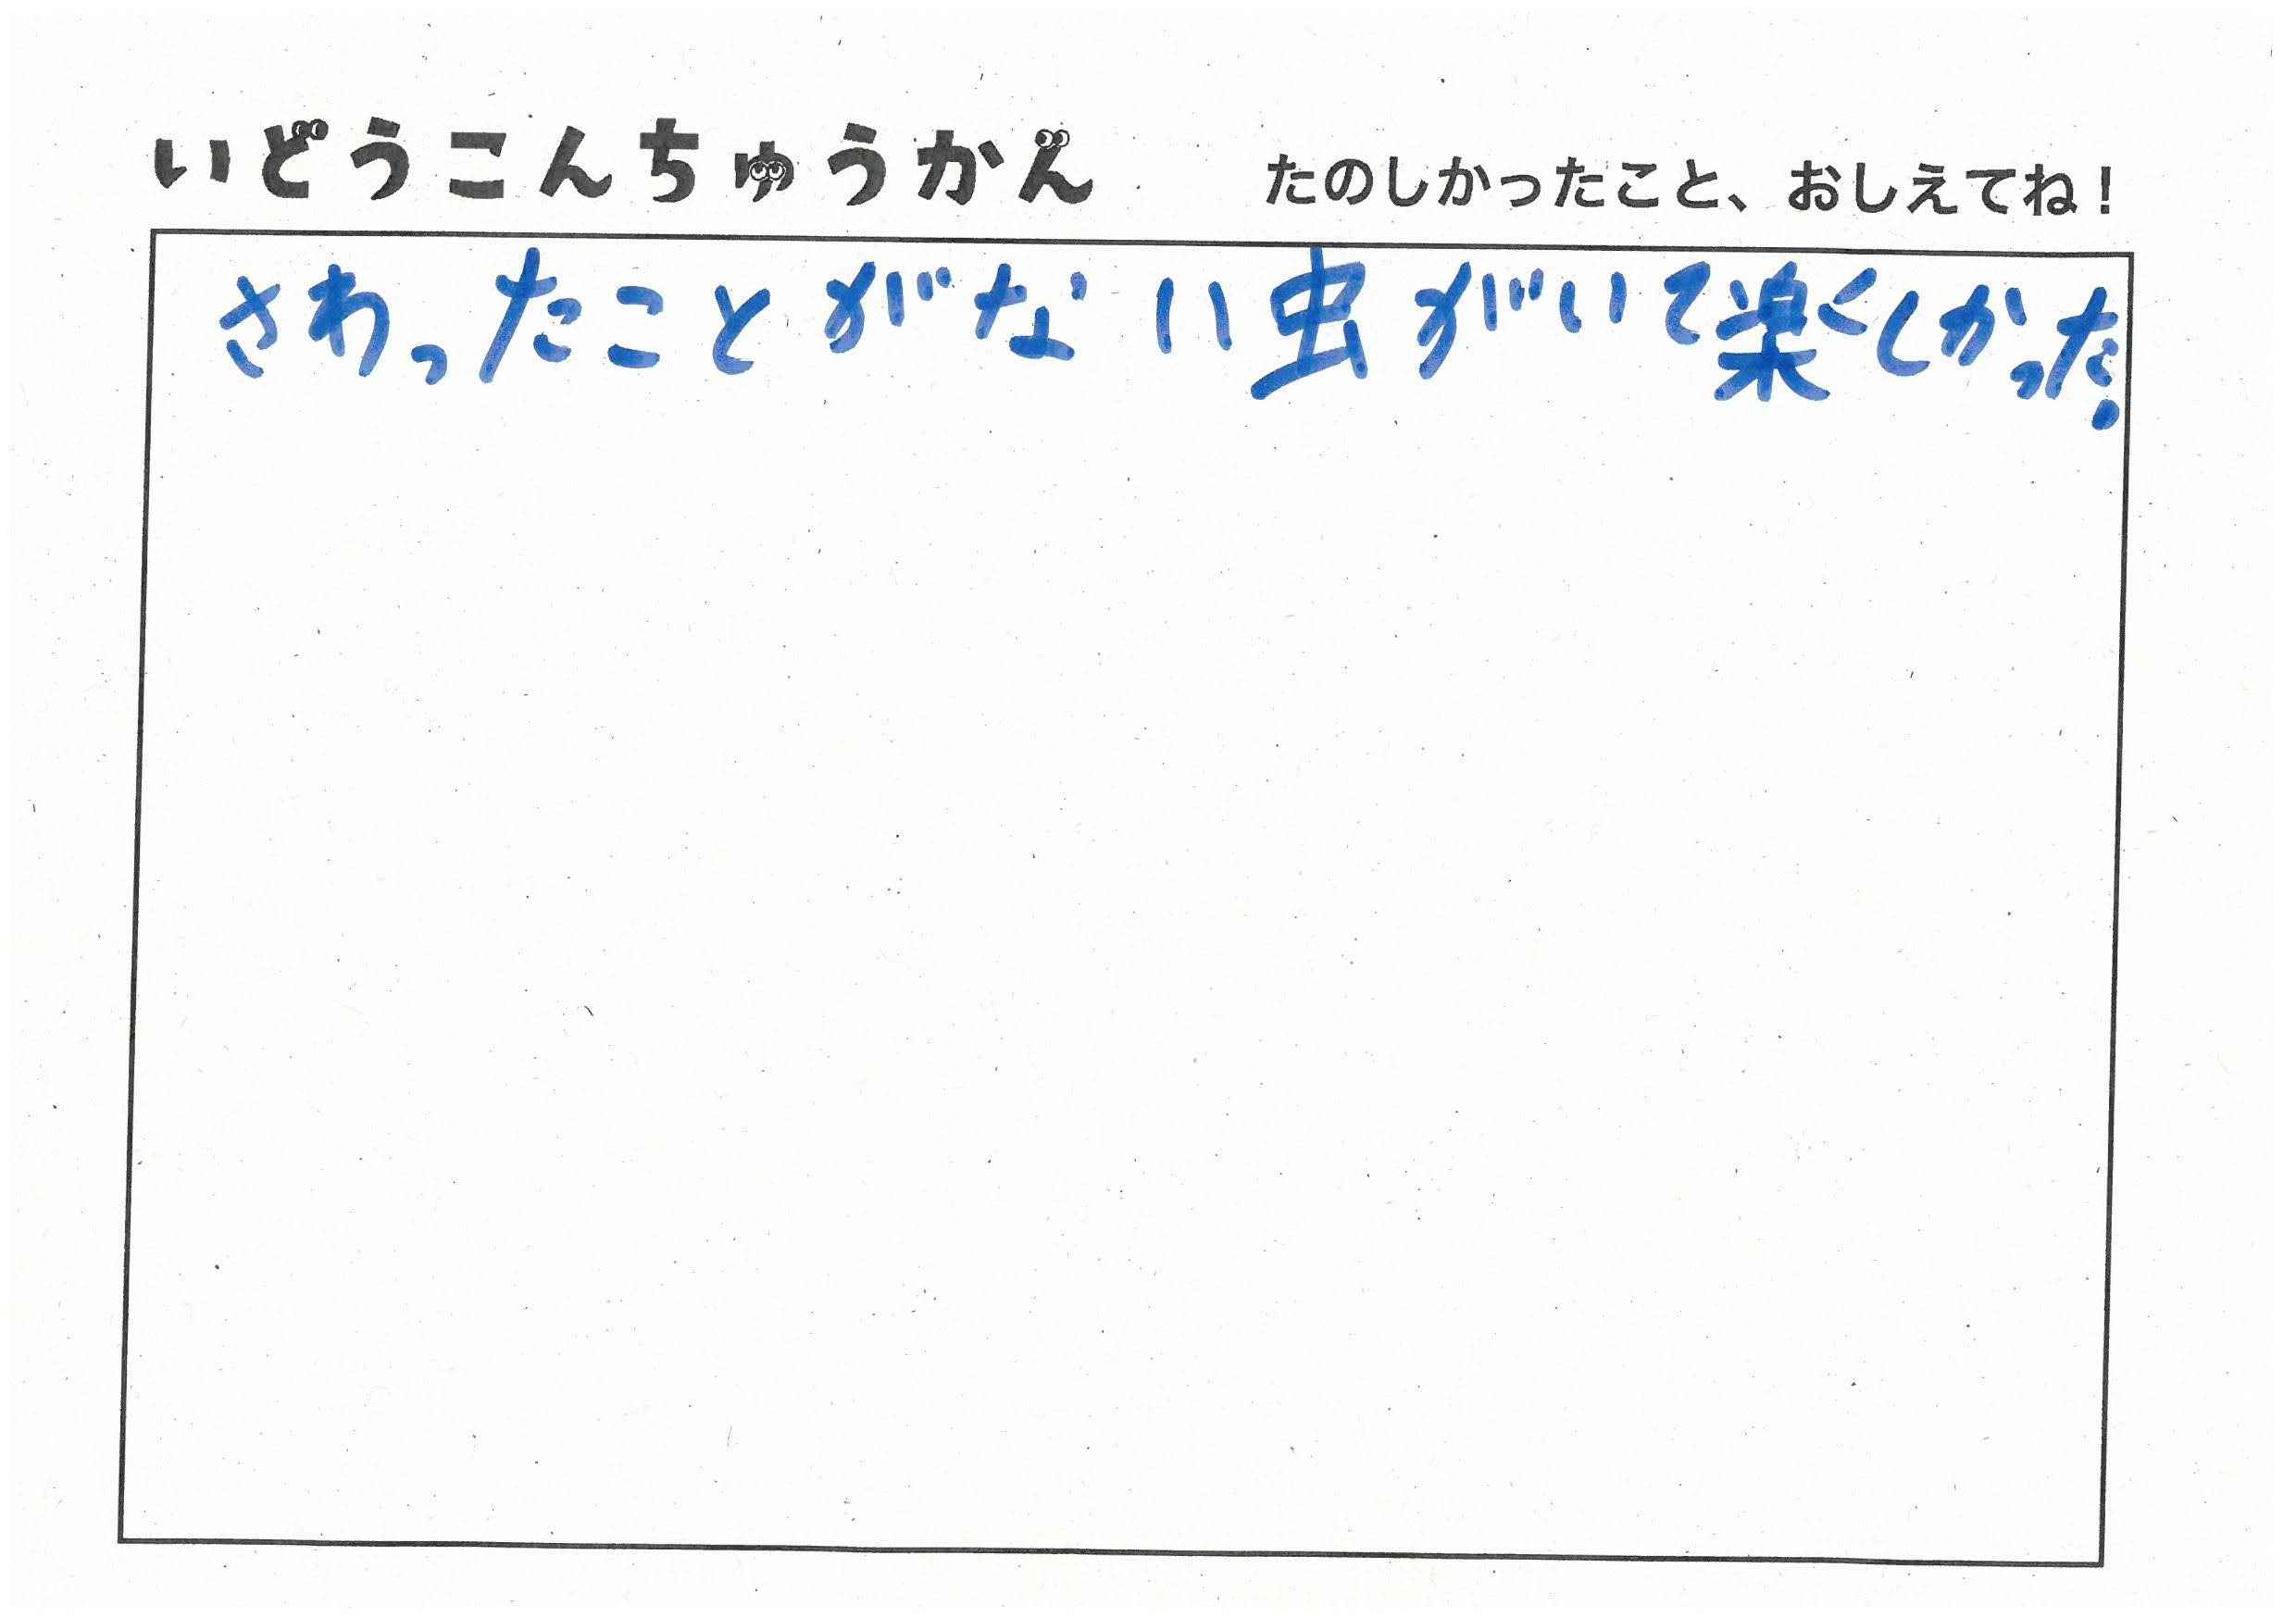 いどうこんちゅうかん
たのしかったこと、おしえてね！
さわったことがない虫がいて楽くしかった。